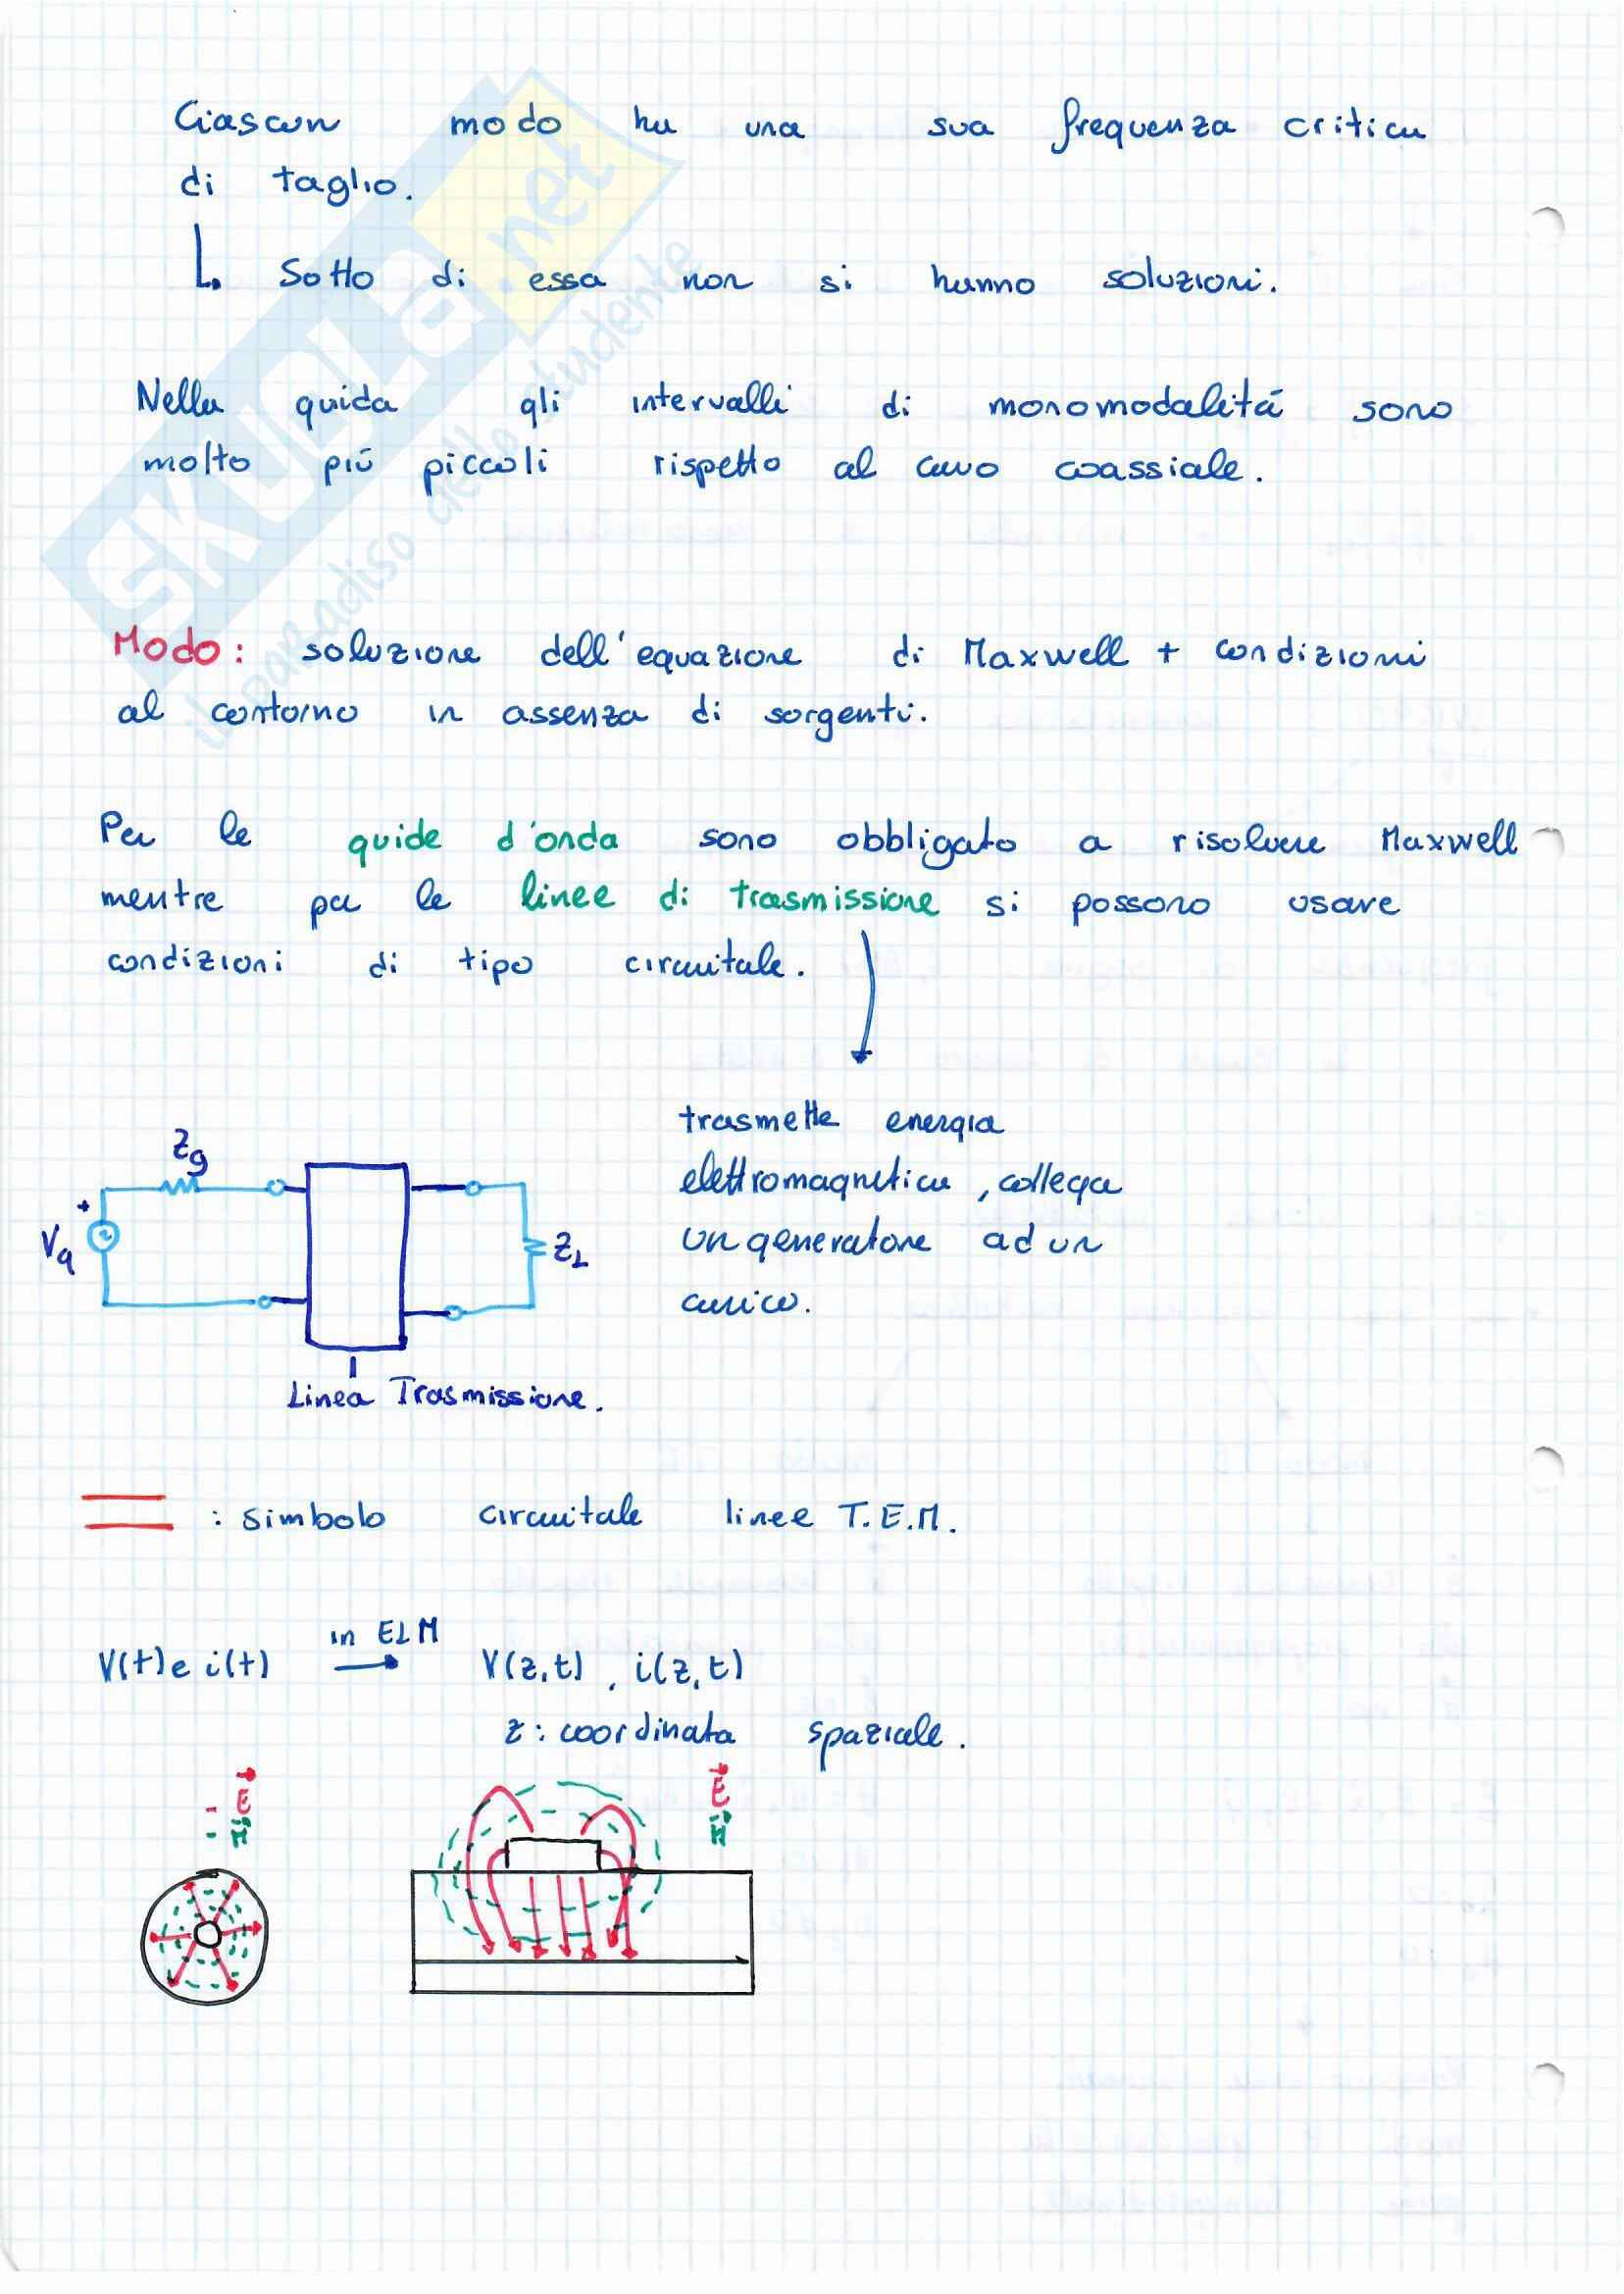 Ciascun modo ha una sua frequenza critica
di taglio.
Sotto di essa non si hanno soluzioni.
Nella guida gli intervalli di monomodalitá sono
molto piú piccoli rispetto al cavo coassiale.
Modo: soluzione dell'equazione di Maxwell + condizioni
al contorno in assenza di sorgenti.
Per le guide d'onda sono obbligato a risolvere Maxwell
mentre per le linee di trasmissione si possono usare
condizioni di tipo circuitale.
trasmette energia
elettromagnetica, collega
un generatore ad un
carico.
Zg
+
Vg
ZL
Linea Trasmissione.
: simbolo circuitale linee T.E.M.
V(t) e i(t) in ELM → V(z,t), i(z,t)
z: coordinata spaziale.
E
H
E
H
SKUOLA.net
il paradiso dello studente